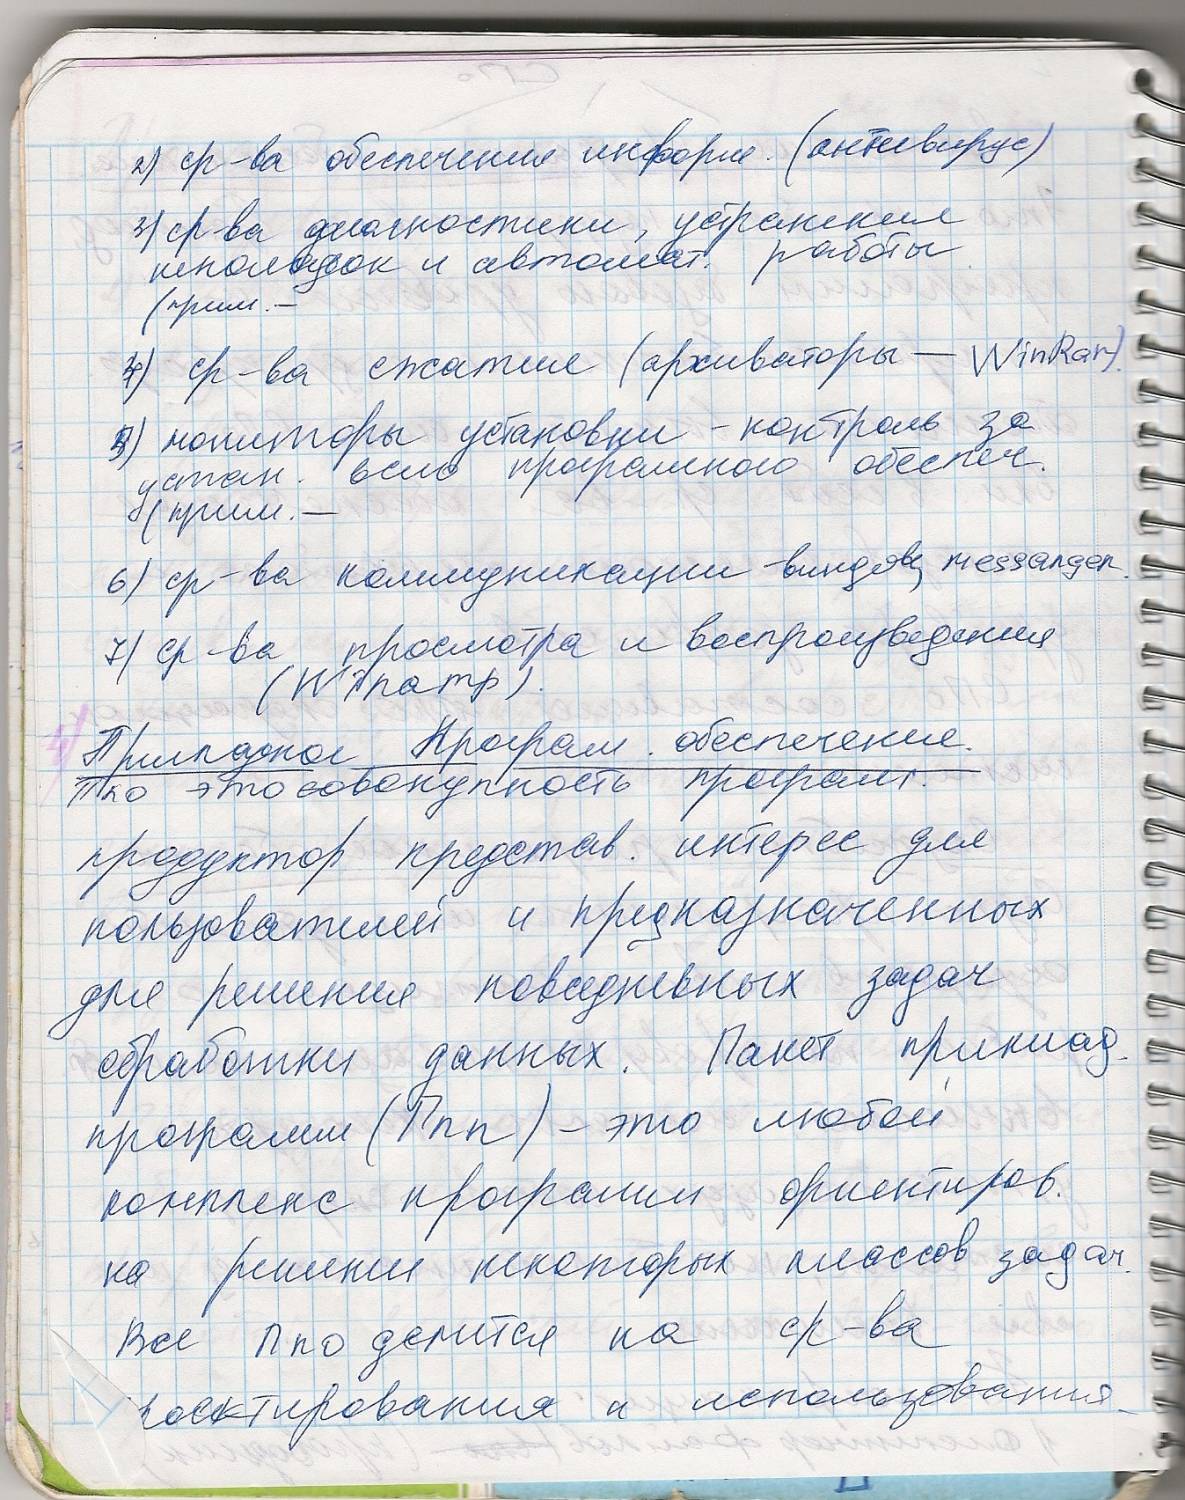 2) ср-ва обеспечения информ. (антивирус)
3) ср-ва диагностики, устранения
неполадок и автомат. работы
(прим. —
4) ср-ва сжатия (архиваторы — WinRar)
5) мониторы установки - контроль за
устан. всего програмного обеспеч.
(прим. —
6) ср-ва коммуникации - виндовс messanger.
7) ср-ва просмотра и воспроизведения
(Winamp).
4) Прикладное Програм. обеспечение.
Ппо это совокупность програмн.
продуктов представ. интерес для
пользователей и предназначенных
для решения повседневных задач
обработки данных. Пакет приклад.
программ (Ппп) - это любой
комплекс программ ориентиров.
на решение некоторых классов задач.
Все Ппо делится на ср-ва
проектирования и использования.